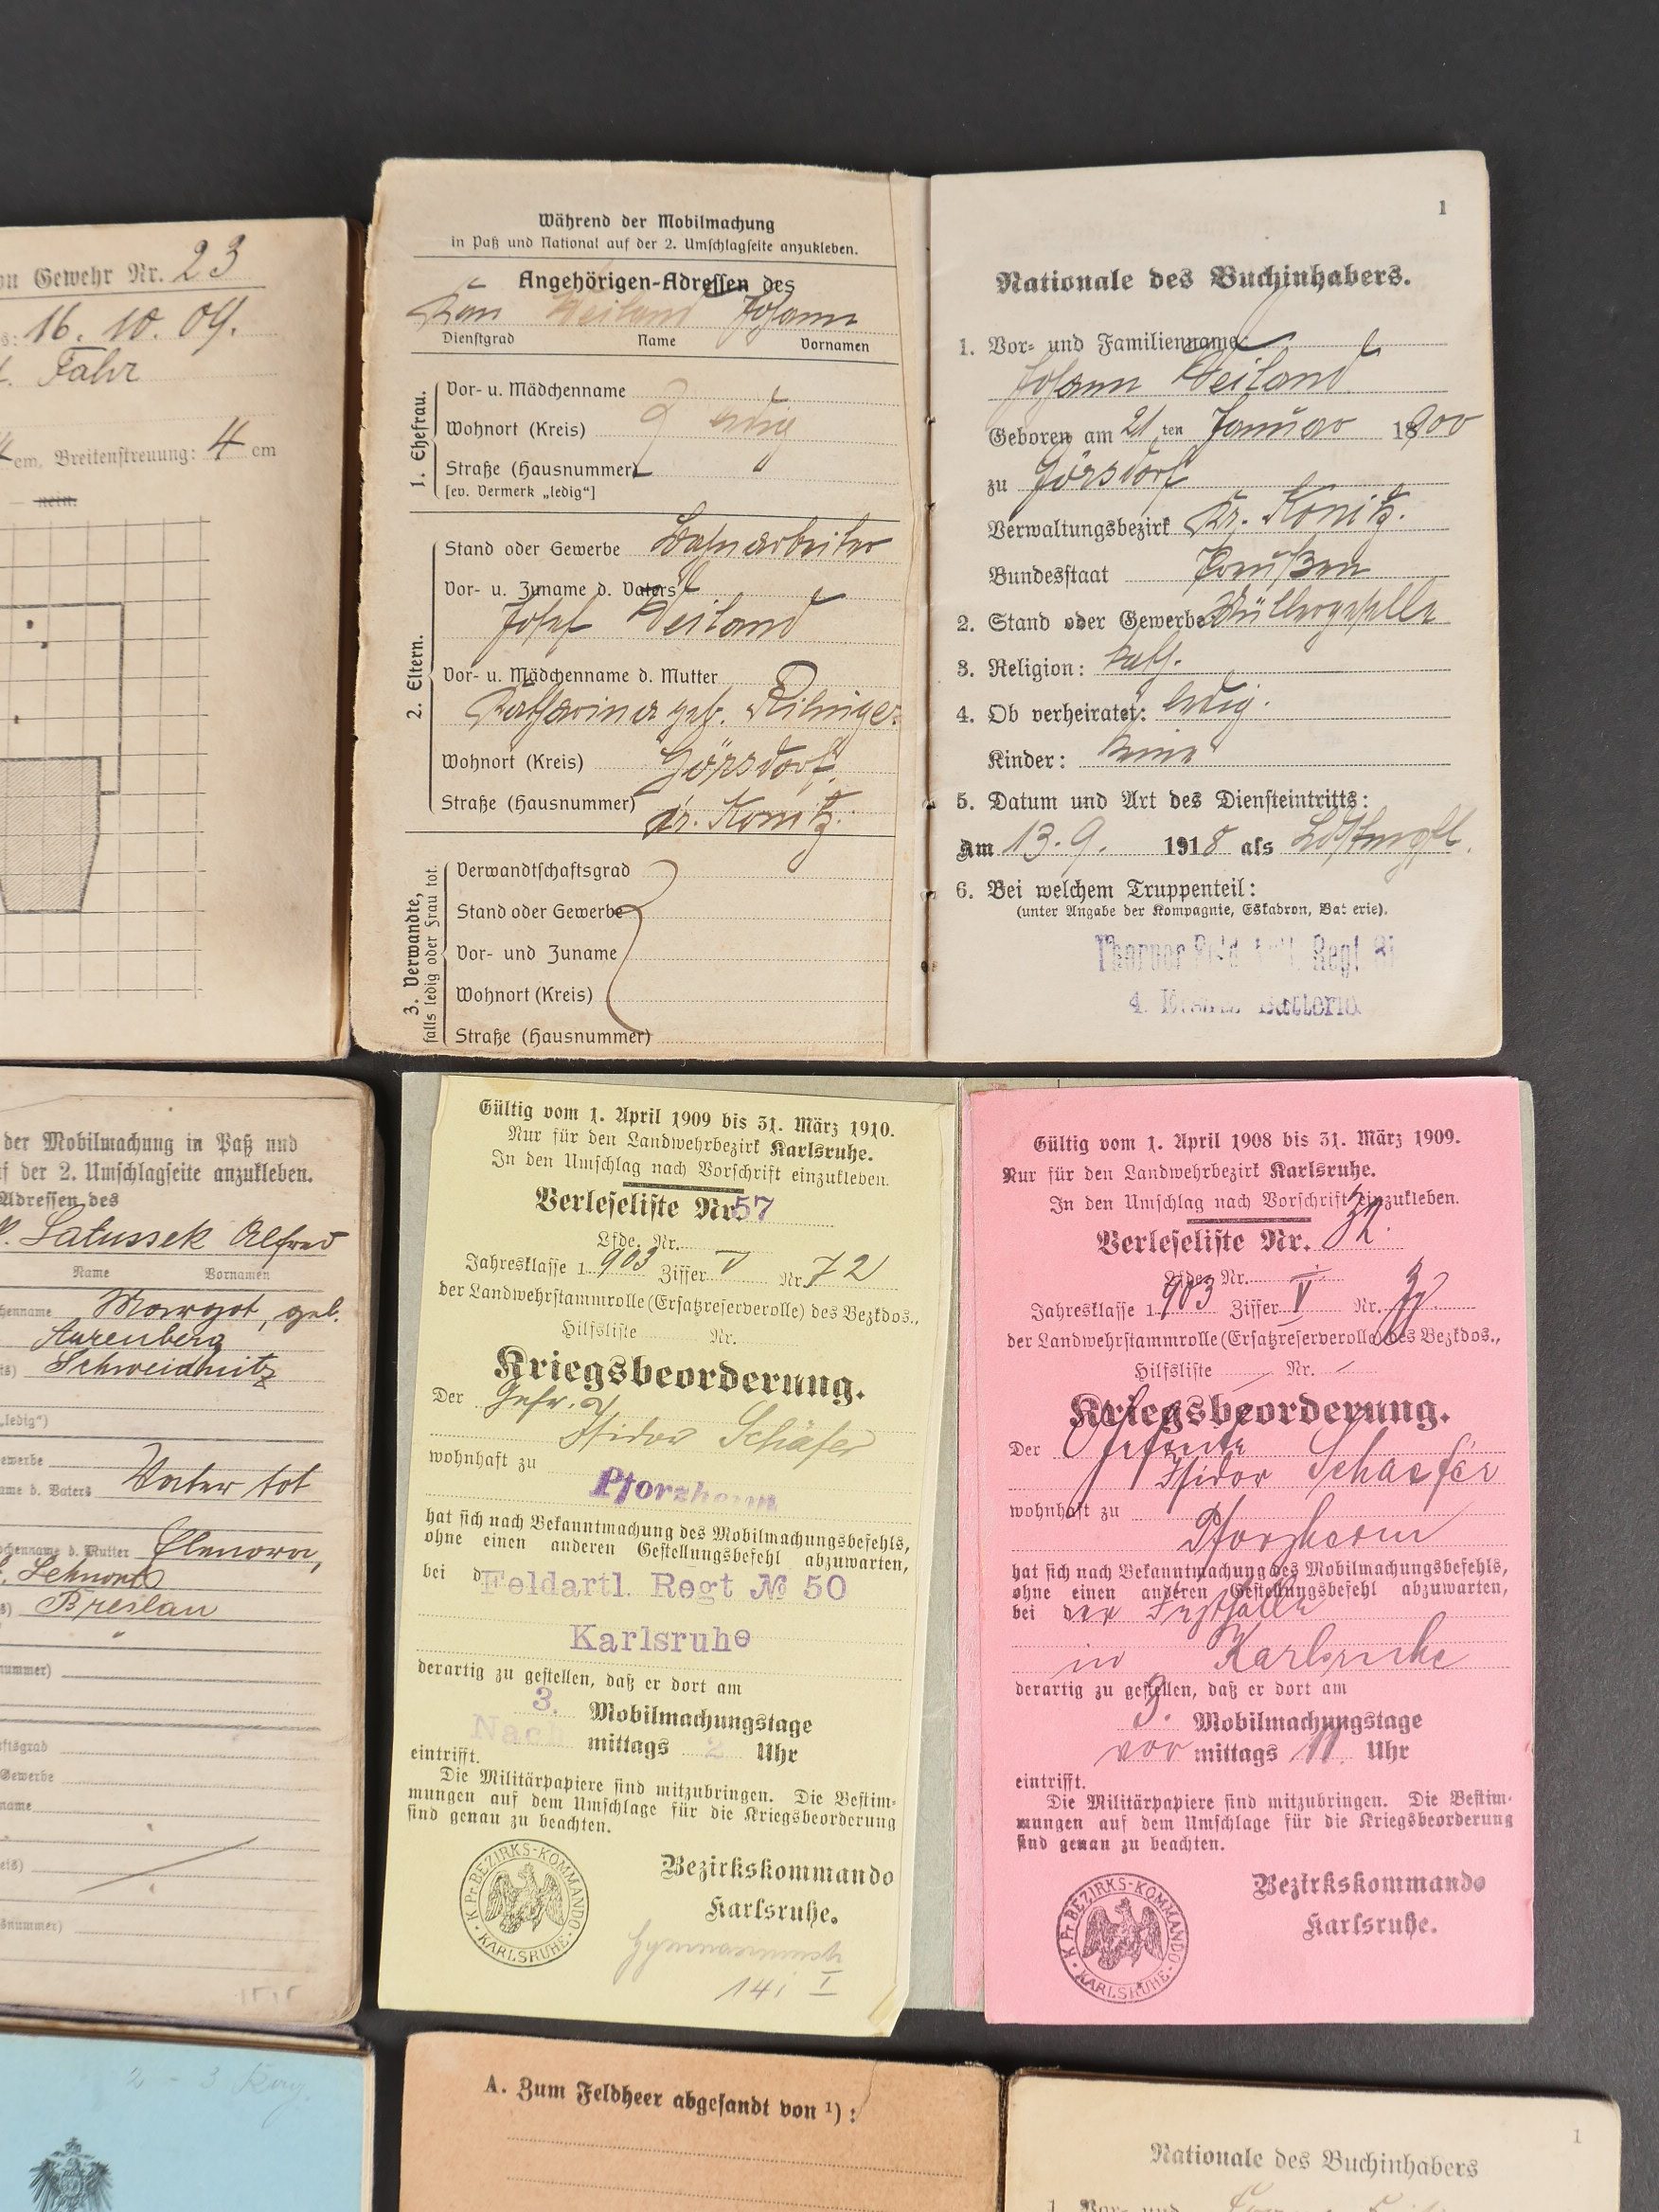 on Gewehr Nr. 23
16. 10. 09.
Fahr
cm, Breitenstreuung: 4 cm
nein.
Während der Mobilmachung
in Paß und National auf der 2. Umschlagseite anzukleben.
Angehörigen-Adressen des
Kan Weiland Johann
Dienstgrad Name Vornamen
1. Ehefrau.
Vor- u. Mädchenname
Wohnort (Kreis) ledig
Straße (Hausnummer)
[ev. Vermerk „ledig“]
2. Eltern.
Stand oder Gewerbe Bahnarbeiter
Vor- u. Zuname d. Vaters
Josef Weiland
Vor- u. Mädchenname d. Mutter
Katharina geb.
Wohnort (Kreis) Görsdorf,
Straße (Hausnummer) Kr. Konitz.
3. Verwandte,
falls ledig oder Frau tot.
Verwandtschaftsgrad
Stand oder Gewerbe
Vor- und Zuname
Wohnort (Kreis)
Straße (Hausnummer)
1
Nationale des Buchinhabers.
1. Vor- und Familienname:
Johann Weiland
Geboren am 21 ten Januar 1900
zu Görsdorf
Verwaltungsbezirk Kr. Konitz.
Bundesstaat Preußen
2. Stand oder Gewerbe Müllergeselle
3. Religion: kath.
4. Ob verheiratet: ledig.
Kinder: keine
5. Datum und Art des Diensteintritts:
Am 13. 9. 1918 als
6. Bei welchem Truppenteil:
(unter Angabe der Kompagnie, Eskadron, Batterie).
Thorner Feld Regt 81
4. Batterie.
der Mobilmachung in Paß und
f der 2. Umschlagseite anzukleben.
Adressen des
Latussek Alfred
Name Vornamen
chenname Margot, geb.
Schweidnitz
„ledig“)
ewerbe
ame d. Vaters Vater tot
dchenname d. Mutter Elenora,
Breslau
nummer)
ftsgrad
Gewerbe
name
eis)
snummer)
Gültig vom 1. April 1909 bis 31. März 1910.
Nur für den Landwehrbezirk Karlsruhe.
In den Umschlag nach Vorschrift einzukleben.
Verleseliste Nr. 57
Lfde. Nr.
Jahresklasse 1903 Ziffer V Nr. 72
der Landwehrstammrolle (Ersatzreserverolle) des Bezkdos.,
Hilfsliste Nr.
Kriegsbeorderung.
Der Gefr. d
Isidor Schäfer
wohnhaft zu
Pforzheim
hat sich nach Bekanntmachung des Mobilmachungsbefehls,
ohne einen anderen Gestellungsbefehl abzuwarten,
bei d Feldartl. Regt № 50
Karlsruhe
derartig zu gestellen, daß er dort am
3. Mobilmachungstage
Nach mittags 2 Uhr
eintrifft.
Die Militärpapiere sind mitzubringen. Die Bestim-
mungen auf dem Umschlage für die Kriegsbeorderung
sind genau zu beachten.
K. Pr. BEZIRKS-KOMMANDO
KARLSRUHE
Bezirkskommando
Karlsruhe.
14 i I
Gültig vom 1. April 1908 bis 31. März 1909.
Nur für den Landwehrbezirk Karlsruhe.
In den Umschlag nach Vorschrift einzukleben.
Verleseliste Nr. 32.
Lfde. Nr.
Jahresklasse 1903 Ziffer V Nr.
der Landwehrstammrolle (Ersatzreserverolle) des Bezkdos.,
Hilfsliste Nr.
Kriegsbeorderung.
Der Gefreite
Isidor Schaefer
wohnhaft zu
Pforzheim
hat sich nach Bekanntmachung des Mobilmachungsbefehls,
ohne einen anderen Gestellungsbefehl abzuwarten,
bei der Festhalle
in Karlsruhe
derartig zu gestellen, daß er dort am
3. Mobilmachungstage
vor mittags 11 Uhr
eintrifft.
Die Militärpapiere sind mitzubringen. Die Bestim-
mungen auf dem Umschlage für die Kriegsbeorderung
sind genau zu beachten.
K. Pr. BEZIRKS-KOMMANDO
KARLSRUHE
Bezirkskommando
Karlsruhe.
2 - 3
A. Zum Feldheer abgesandt von ¹) :
1
Nationale des Buchinhabers
1. Vor- und